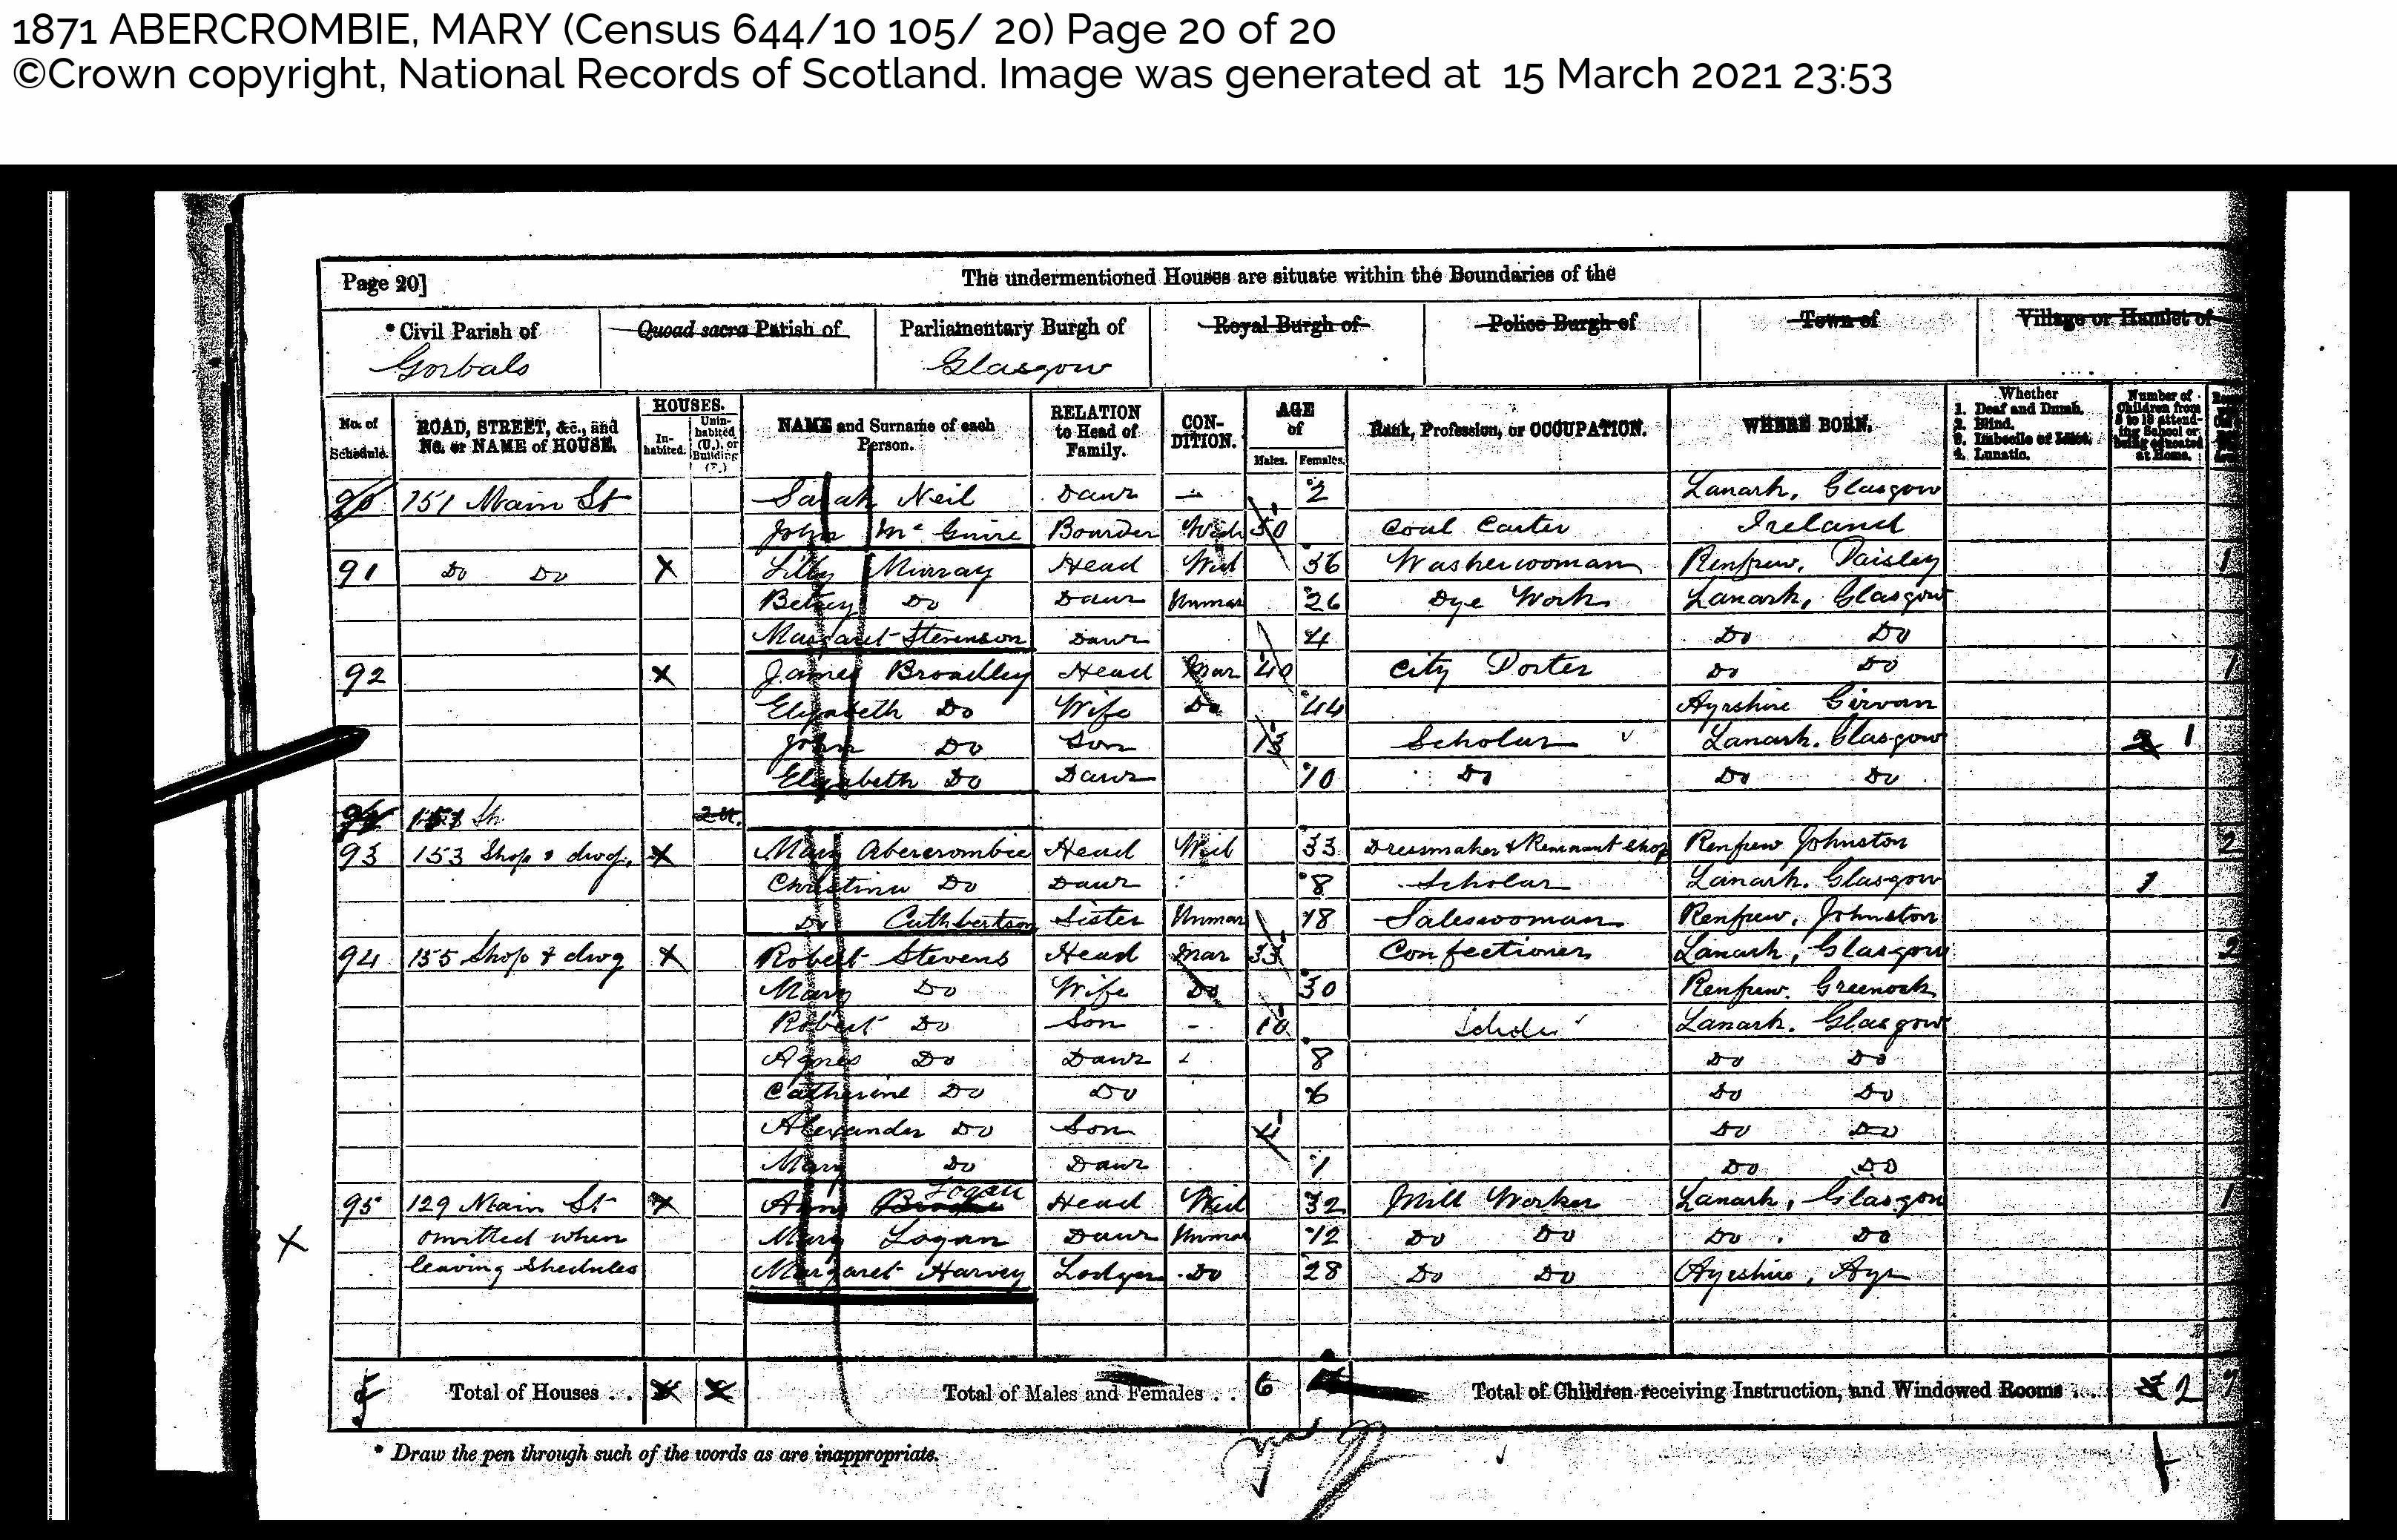 1871 ABERCROMBIE, MARY (Census 644/10 105/ 20) Page 20 of 20
©Crown copyright, National Records of Scotland. Image was generated at 15 March 2021 23:53
Page 20] The undermentioned Houses are situate within the Boundaries of the
* Civil Parish of Quoad sacra Parish of Parliamentary Burgh of Royal Burgh of Police Burgh of Town of Village or Hamlet of
Gorbals Glasgow
No. of Schedule. ROAD, STREET, &c., and No. or NAME of HOUSE. HOUSES. In-habited. Unin-habited (U.), or Building (B.) NAME and Surname of each Person. RELATION to Head of Family. CON-DITION. AGE of Males. Females. Rank, Profession, or OCCUPATION. WHERE BORN. Whether 1. Deaf and Dumb. 2. Blind. 3. Imbecile or Idiot. 4. Lunatic. Number of Children from 5 to 13 attend-ing School or being educated at Home.
90 151 Main St Sarah Neil Daur - 2 Lanark, Glasgow
John McGuire Boarder Wid 50 Coal Carter Ireland
91 Do Do X Lilly Murray Head Wid 36 Washerwoman Renfrew, Paisley 1
Betsey Do Daur Unmar 26 Dye Work Lanark, Glasgow
Margaret Stevenson Daur 4 Do Do
92 X James Broadley Head Mar 40 City Porter Do Do 1
Elizabeth Do Wife Do 44 Ayrshire Girvan
John Do Son 13 Scholar Lanark. Glasgow 2 1
Elizabeth Do Daur 10 Do Do Do
2 U.
93 153 Shop & dwg. X Mary Abercrombie Head Wid 33 Dressmaker & Remnant Shop Renfrew Johnston 2
Christina Do Daur 8 Scholar Lanark. Glasgow 1
Do Cuthbertson Sister Unmar 18 Saleswoman Renfrew, Johnston
94 155 Shop & dwg X Robert Stevens Head Mar 33 Confectioner Lanark, Glasgow 2
Mary Do Wife Do 30 Renfrew. Greenock
Robert Do Son - 10 Scholar Lanark. Glasgow
Agnes Do Daur 8 Do Do
Catherine Do Do 6 Do Do
Alexander Do Son 4 Do Do
Mary Do Daur 1 Do Do
95 129 Main St X Ann Logan Head Wid 32 Mill Worker Lanark, Glasgow 1
X omitted when Mary Logan Daur Unmar 12 Do Do Do Do
leaving Shedules Margaret Harvey Lodger Do 28 Do Do Ayrshire, Ayr
Total of Houses . . Total of Males and Females . . 6 Total of Children receiving Instruction, and Windowed Rooms . . . 2 7
* Draw the pen through such of the words as are inappropriate.